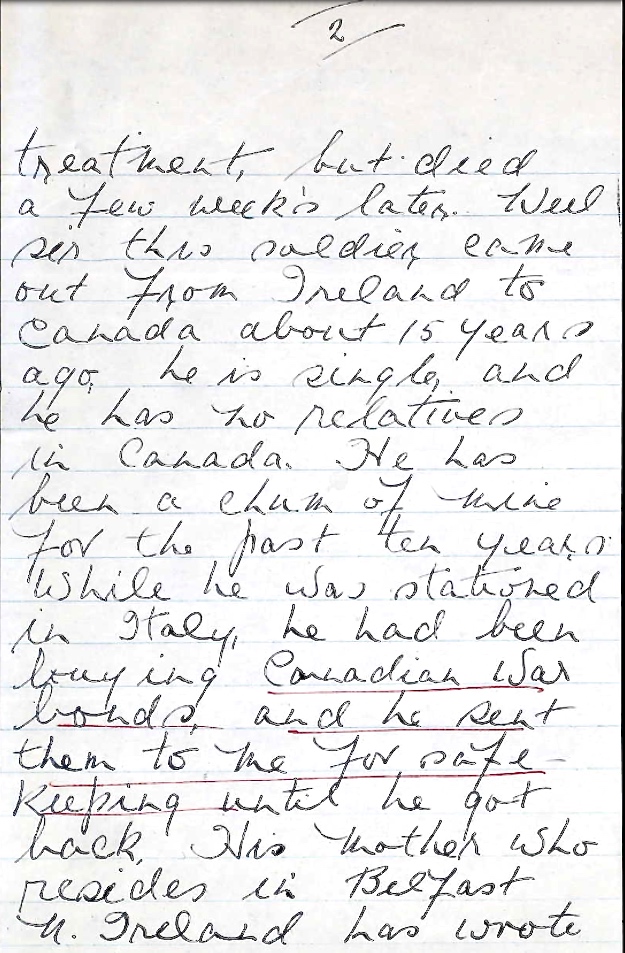 2
treatment, but died
a few week's later. Well
sir this soldier came
out from Ireland to
Canada about 15 years
ago, he is single, and
he has no relatives
in Canada. He has
been a chum of mine
for the past ten years.
While he was stationed
in Italy, he had been
buying Canadian War
bonds, and he sent
them to me for safe-
keeping until he got
back. His mother who
resides in Belfast
N. Ireland has wrote